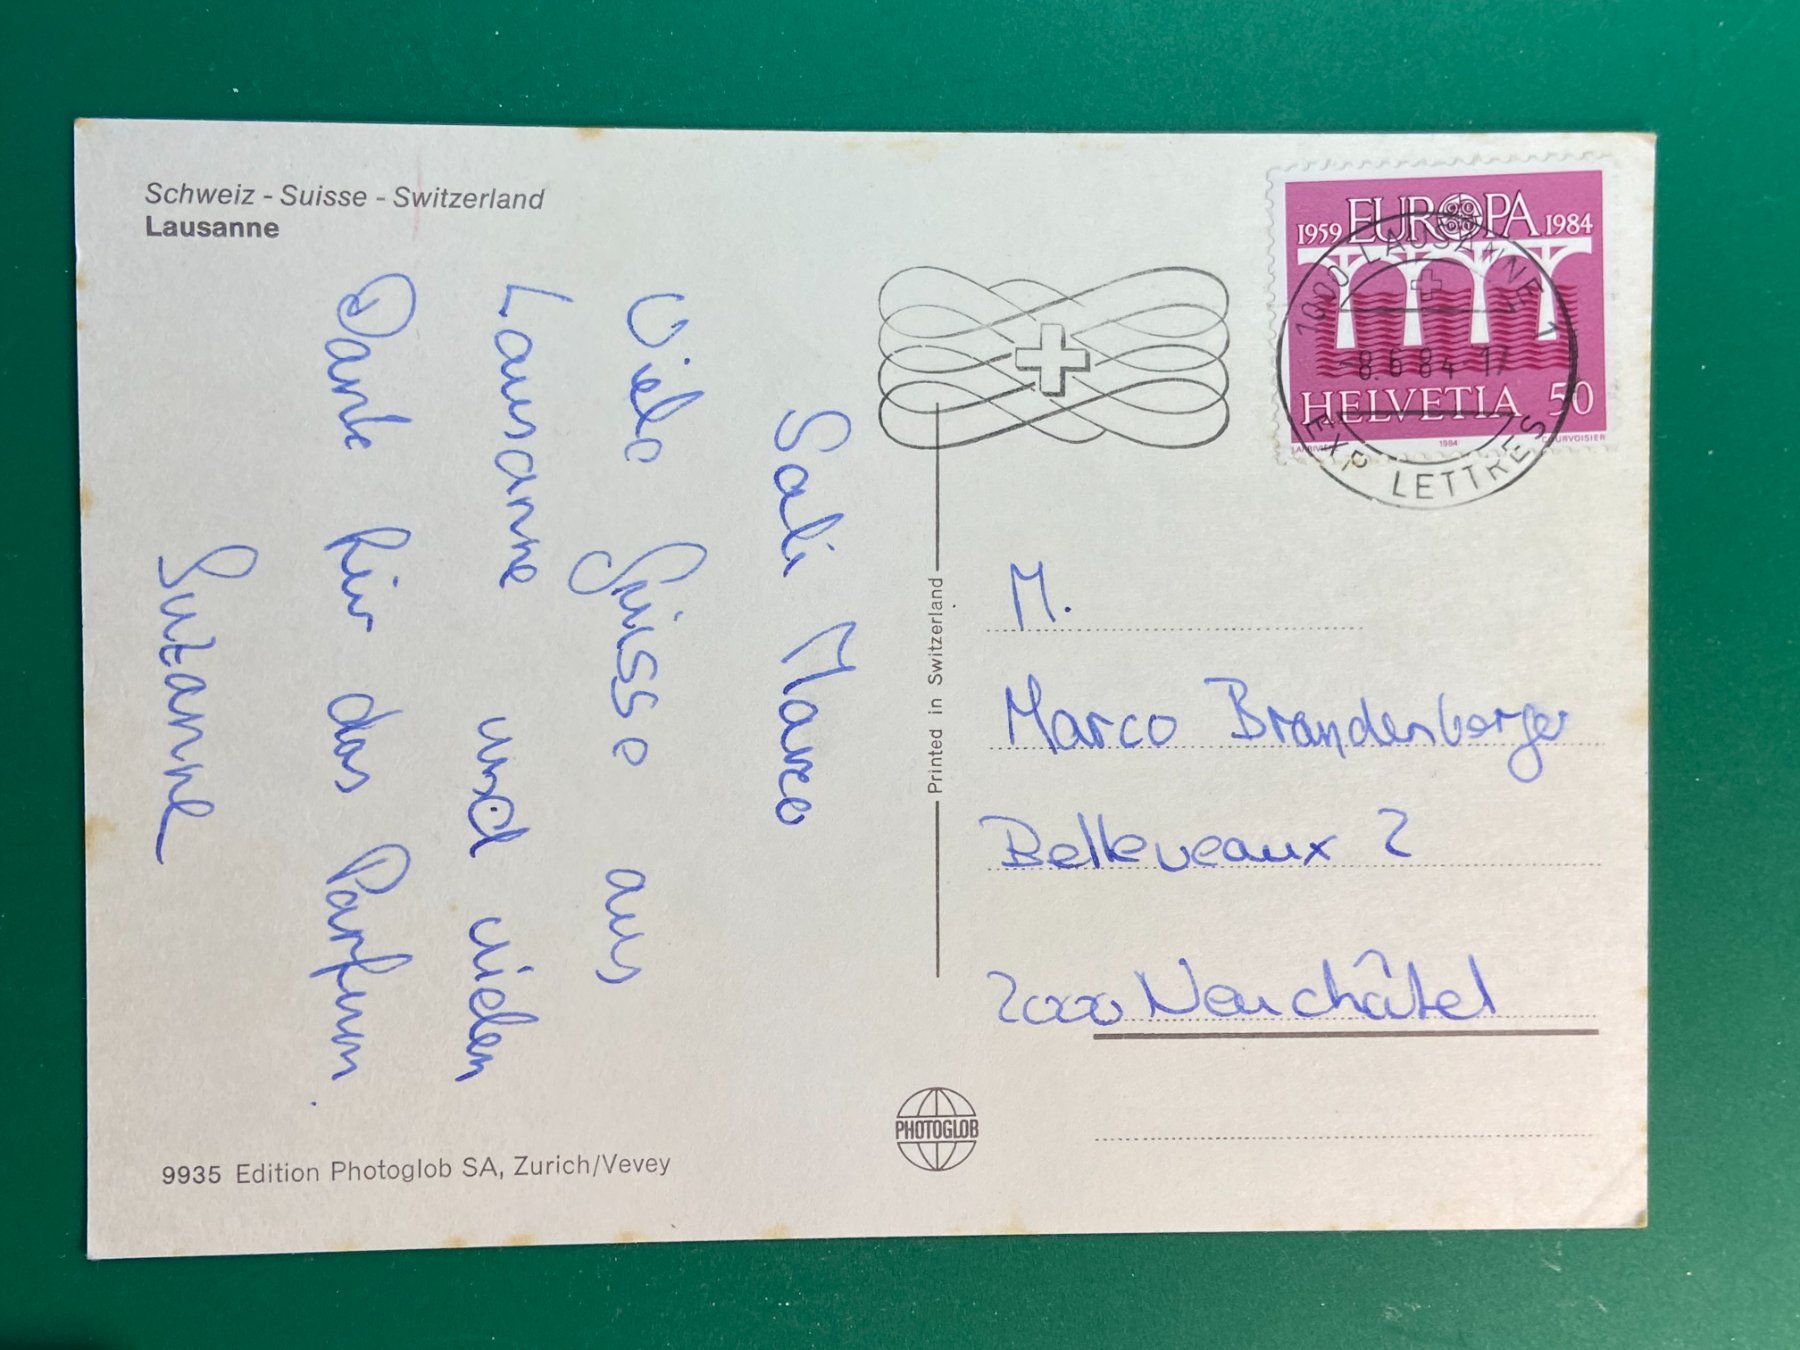 Schweiz - Suisse - Switzerland
Lausanne
Sali Marco
Viele Grüsse aus
Lausanne und vielen
Dank für das Parfum.
Suzanne
9935 Edition Photoglob SA, Zurich/Vevey
Printed in Switzerland
PHOTOGLOB
1959 EUROPA 1984
HELVETIA 50
1984
COURVOISIER
1000 LAUSANNE 1
-8.6.84-17
EXP LETTRES
M.
Marco Brandenberger
Belleveaux 2
2000 Neuchâtel